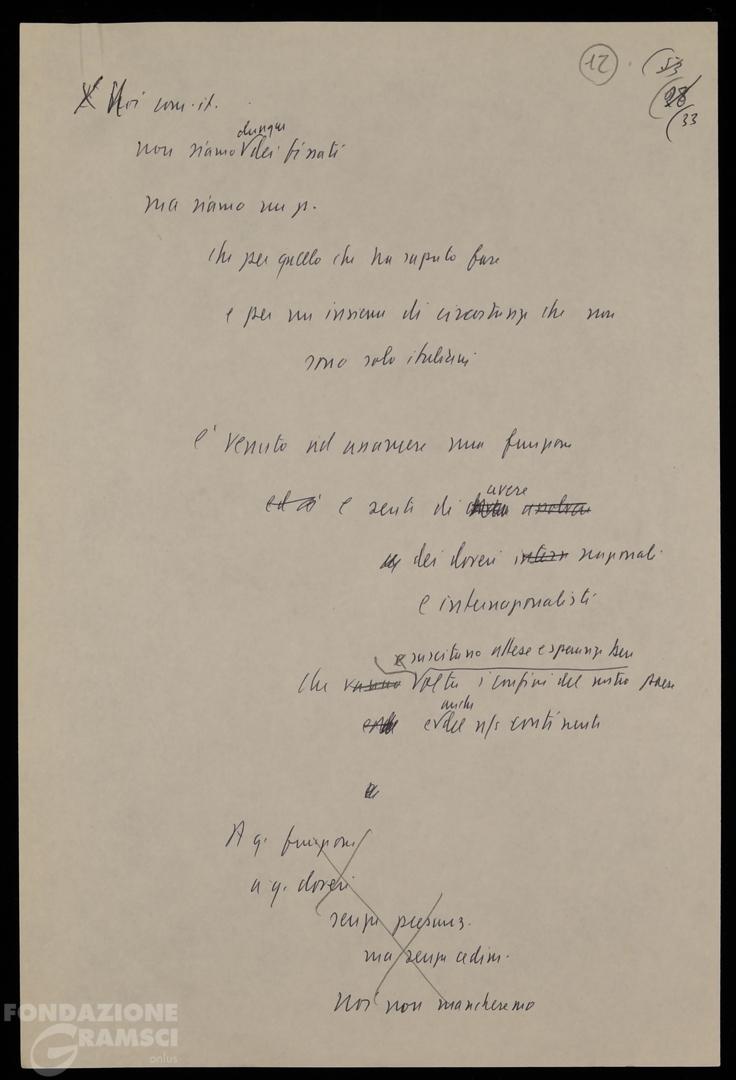 12
33
Noi com. it.
dunque
non siamo dei fissati
ma siamo un p.
che per quello che ha saputo fare
e per un insieme di circostanze che non
sono solo italiane
è venuto ad assumere una funzione
avere
e sente di
dei doveri nazionali
e internazionalisti
e suscitano attese e speranze ben
che oltre i confini del nostro paese
anche
e del n/s continente
A q. funzione
a q. doveri
senza presunz.
ma senza cedim.
noi non mancheremo
FONDAZIONE
GRAMSCI
onlus